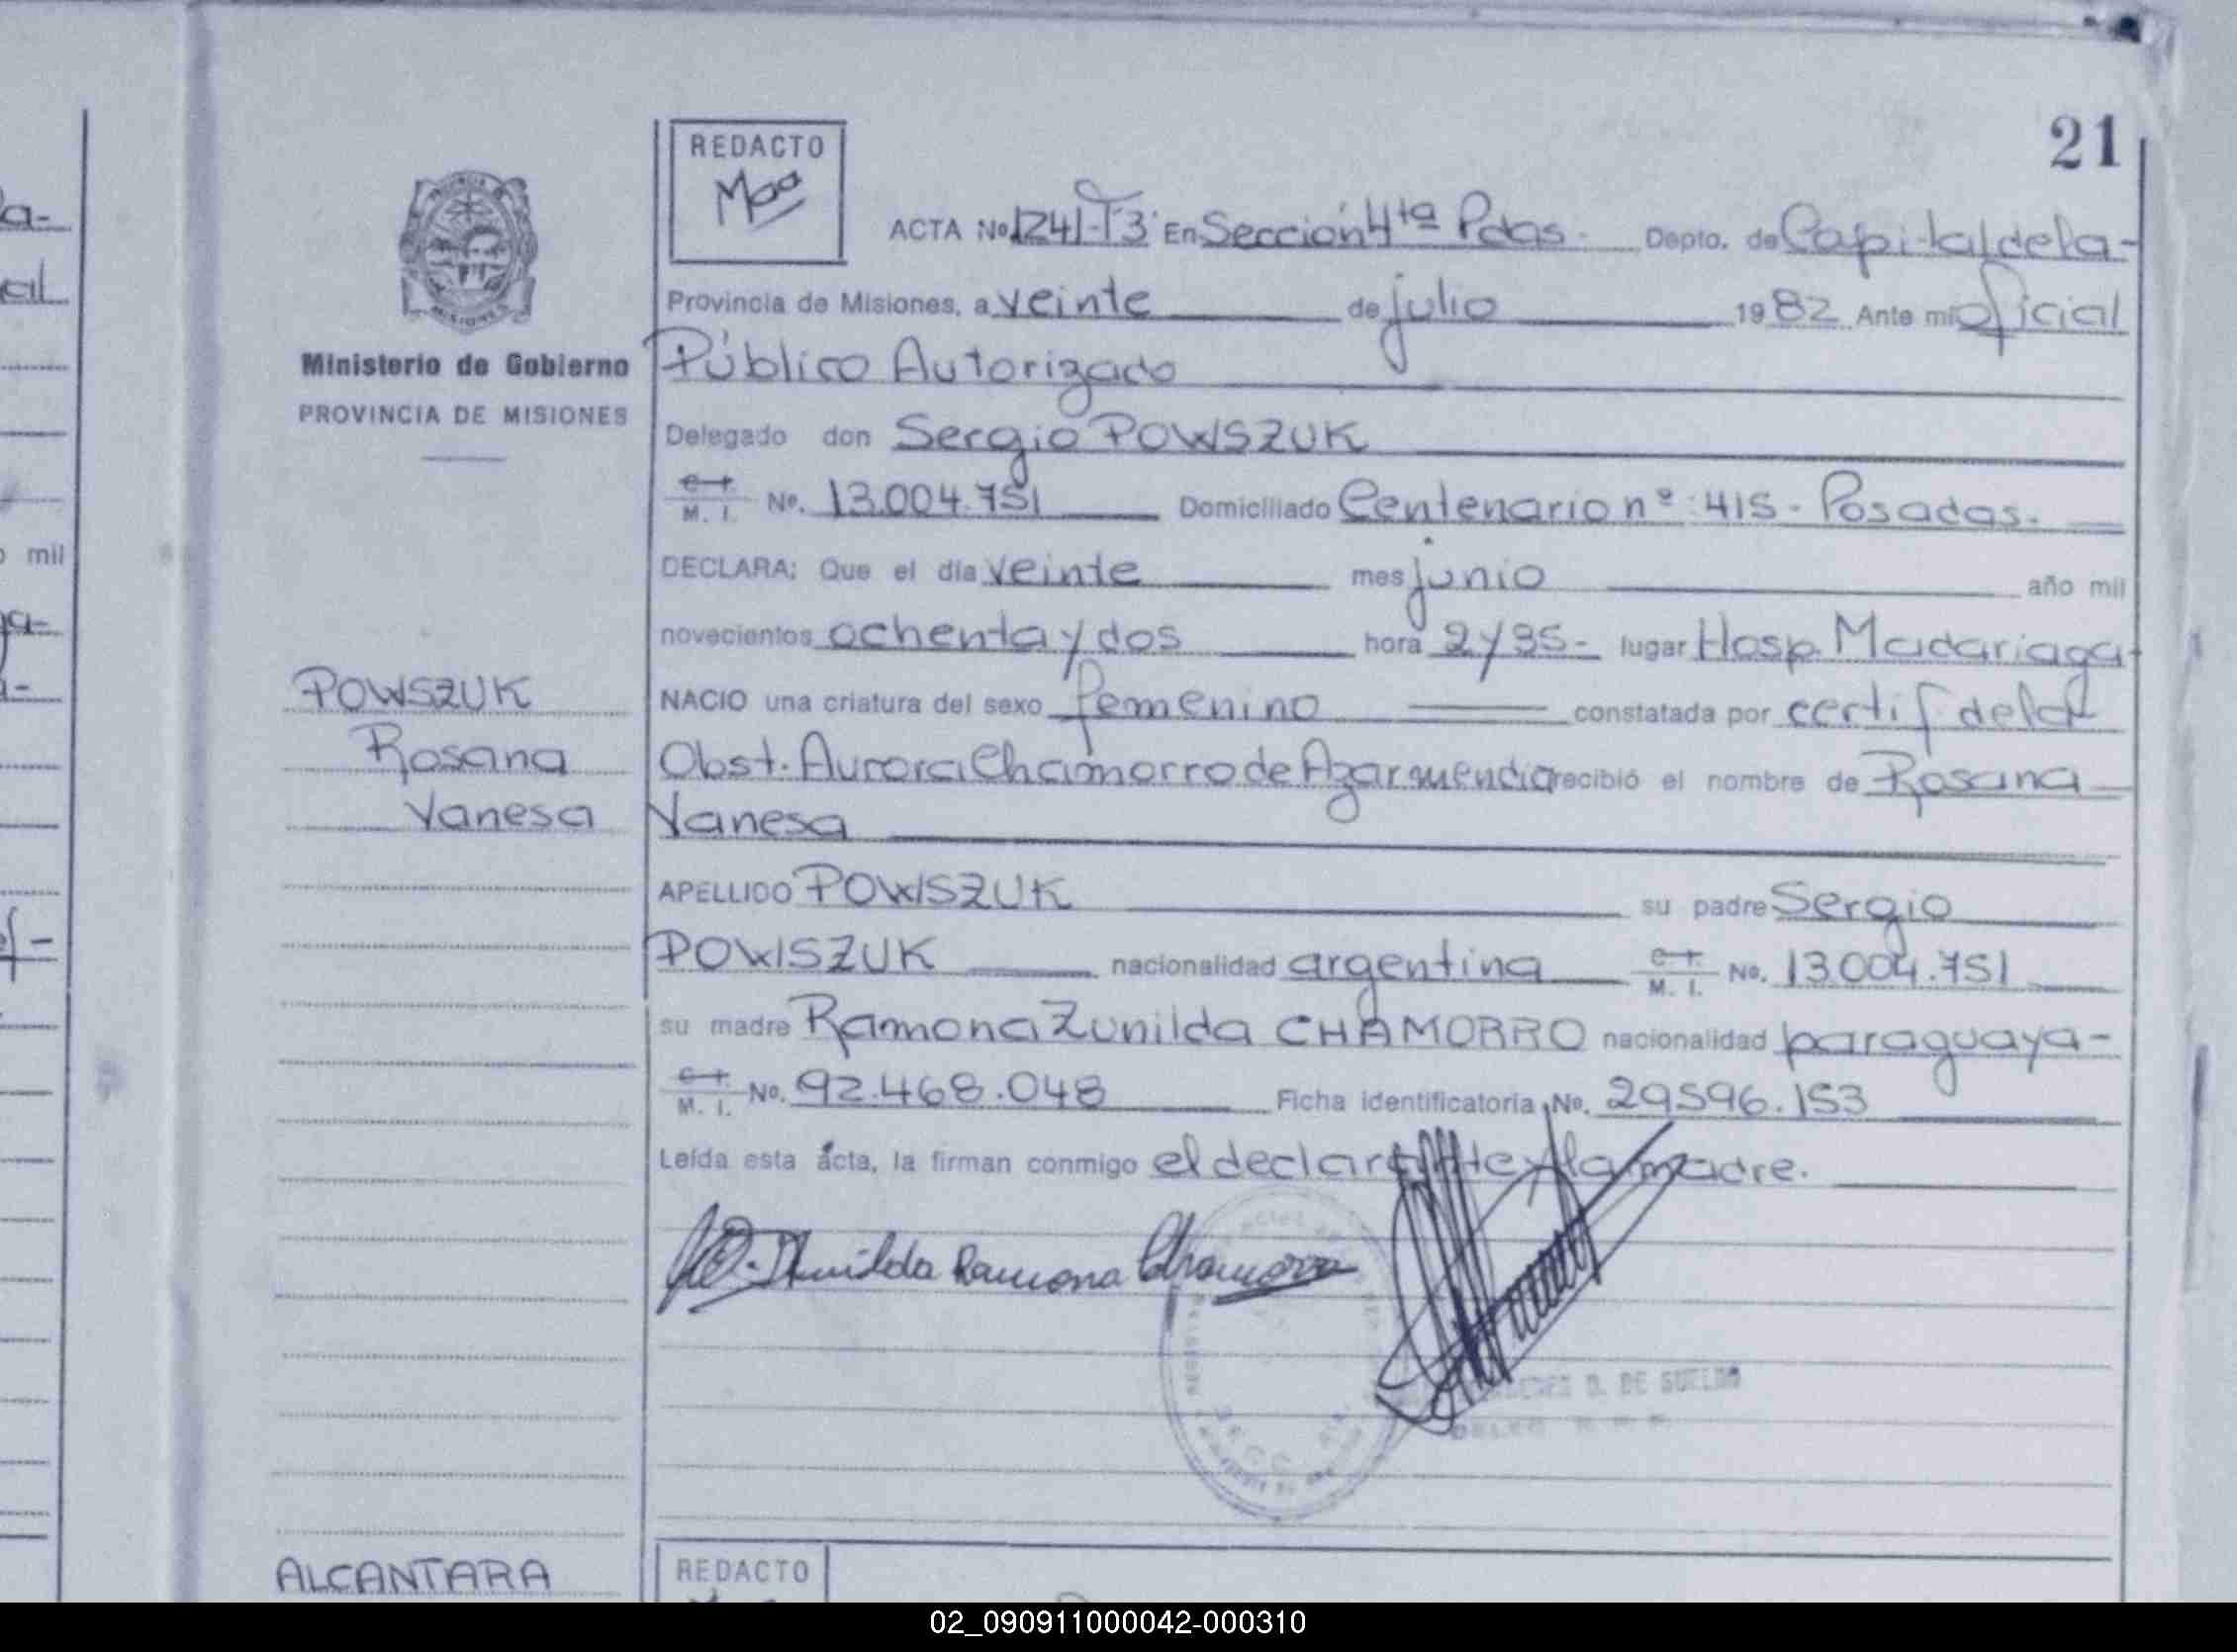 21
REDACTO
ACTA No 1241-T3 En Sección 4ta Pdas. Depto. de Capital de la-
Provincia de Misiones, a veinte de julio 1982 Ante mi oficial
Público Autorizado
Delegado don Sergio POWSZUK
C. I. M. I. No. 13.004.751 Domiciliado Centenario nº 415- Posadas.
DECLARA: Que el día veinte mes junio año mil
novecientos ochenta y dos hora 2 y 35- lugar Hosp. Madariaga-
NACIO una criatura del sexo femenino constatada por certif de la
Obst. Aurora Chamorro de Azarmendia recibió el nombre de Rosana
Vanesa
APELLIDO POWSZUK su padre Sergio
POWSZUK nacionalidad argentina C. I. M. I. No. 13.004.751
su madre Ramona Zunilda CHAMORRO nacionalidad paraguaya-
C. I. M. I. No. 92.468.048 Ficha identificatoria No. 29596.153
Leída esta acta, la firman conmigo el declarante y la madre.
Zunilda Ramona Chamorro
D. DE SUELDO
Ministerio de Gobierno
PROVINCIA DE MISIONES
POWSZUK
Rosana
Vanesa
ALCANTARA
REDACTO
a-
al
mil
ga-
a-
ef-
02_090911000042-000310